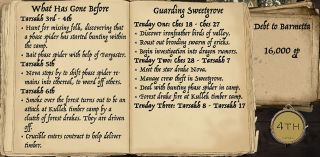 What Has Gone Before
Tarsakh 3rd - 4th
• Hunt for missing folk, discovering that
a phase spider has started hunting within
the camp.
• Bait phase spider with help of
Tarsakh 5th
• Nova stops by to drift phase spider re-
mains into ethereal, to ward off others.
Tarsakh 6th
• Smoke over the forest turns out to be an
attack at Kullek timber camp by a
clutch of forest drakes. They are driven
off.
• Crucible enters contract to help deliver
timber.
Guarding Sweetgrove
Tenday One: Ches 18 - Ches 27
• Discover ironfeather birds of valley.
• Rout out brooding swarm of gricks.
• Begin investigation into dragon rumors.
Tenday Two: Ches 28 - Tarsakh 7
• Meet the star drake Nova.
• Manage crew theft in Sweetgrove.
• Deal with hunting phase spider in camp.
• Forest drake fire at Kullek timber camp.
Tenday Three: Tarsakh 8 - Tarsakh 17
Debt to Barmetta
16,000 gp
4TH